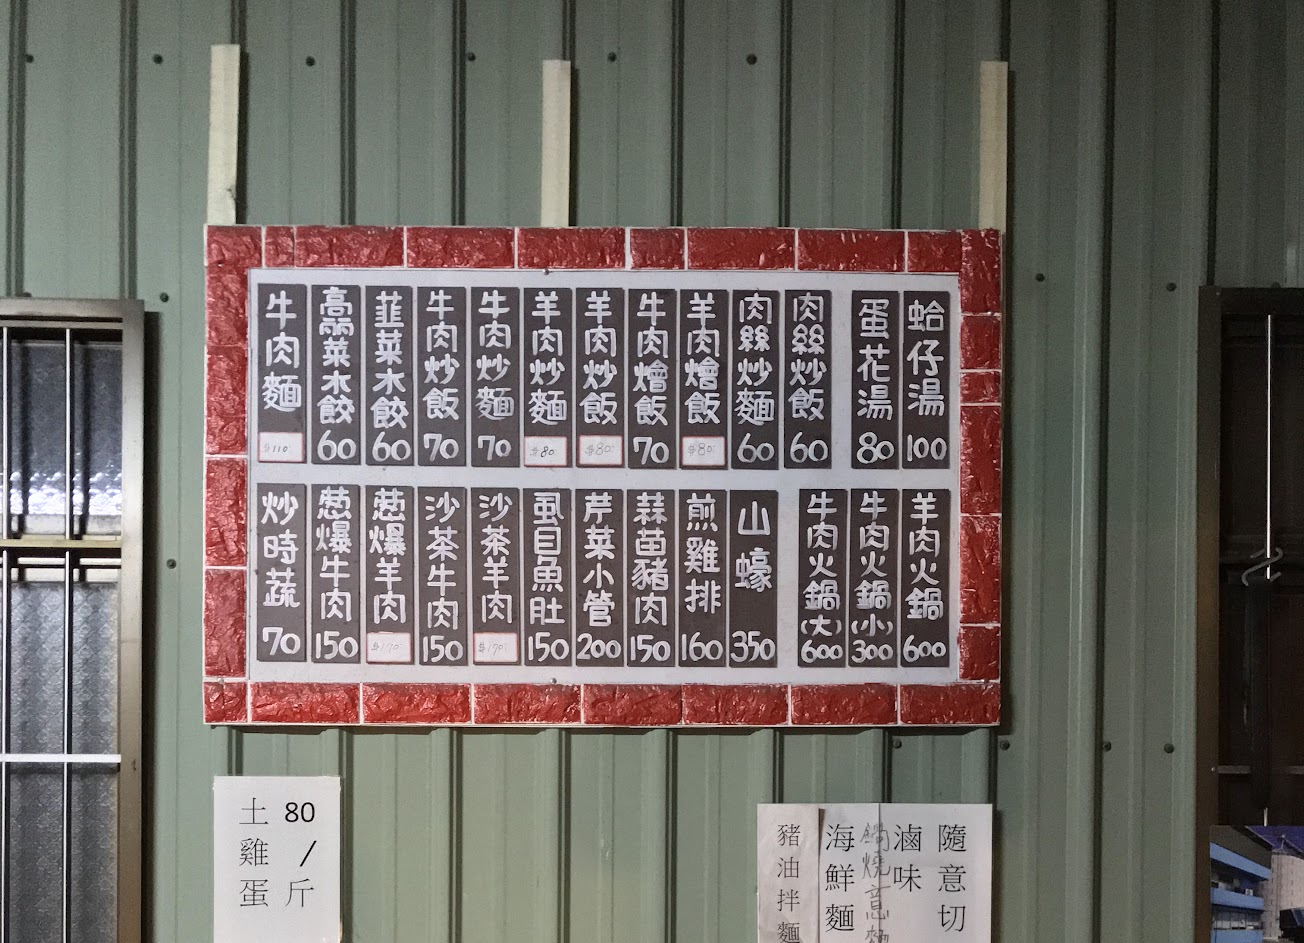 牛肉麵 $110
高麗菜水餃 60
韮菜水餃 60
牛肉炒飯 70
牛肉炒麵 70
羊肉炒麵 $80
羊肉炒飯 $80
牛肉燴飯 70
羊肉燴飯 $80
肉絲炒麵 60
肉絲炒飯 60
蛋花湯 80
蛤仔湯 100
炒時蔬 70
葱爆牛肉 150
葱爆羊肉 $170
沙茶牛肉 150
沙茶羊肉 $170
虱目魚肚 150
芹菜小管 200
蒜苗豬肉 150
煎雞排 160
山蠔 350
牛肉火鍋(大) 600
牛肉火鍋(小) 300
羊肉火鍋 600
土雞蛋
80/斤
隨意切
滷味
鍋燒意麵
海鮮麵
豬油拌麵